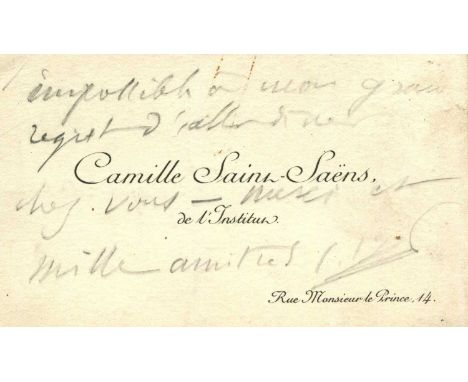 impossible à mon grand
regret d'aller dîner
Camille Saint-Saëns,
chez vous — merci et
de l'Institut
mille amitiés
Rue Monsieur le Prince, 14.